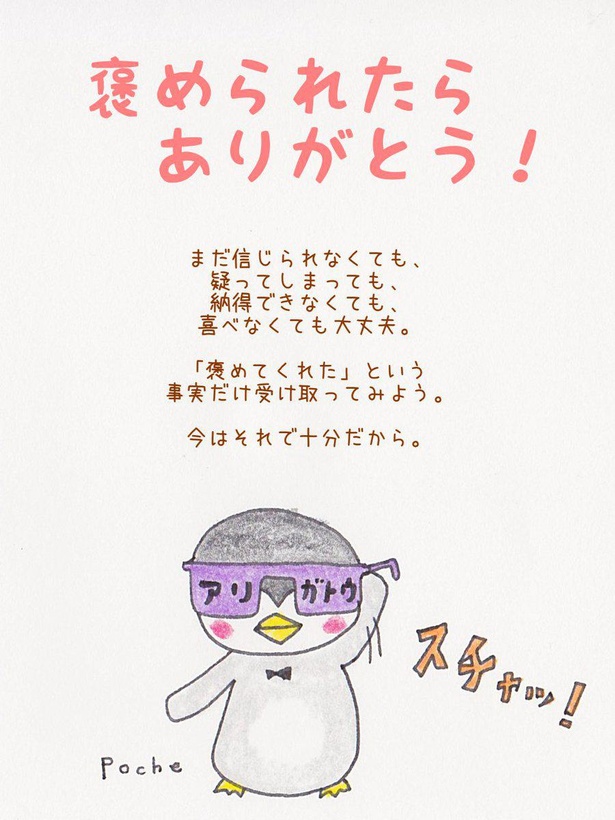 褒められたら
ありがとう！
まだ信じられなくても、
疑ってしまっても、
納得できなくても、
喜べなくても大丈夫。
「褒めてくれた」という
事実だけ受け取ってみよう。
今はそれで十分だから。
アリ ガトウ
スチャッ！
Poche